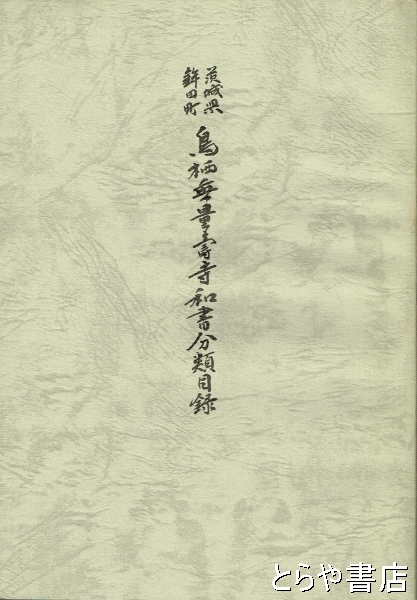 茨城県
鉾田町
鳥栖無量壽寺和書分類目録
とらや書店